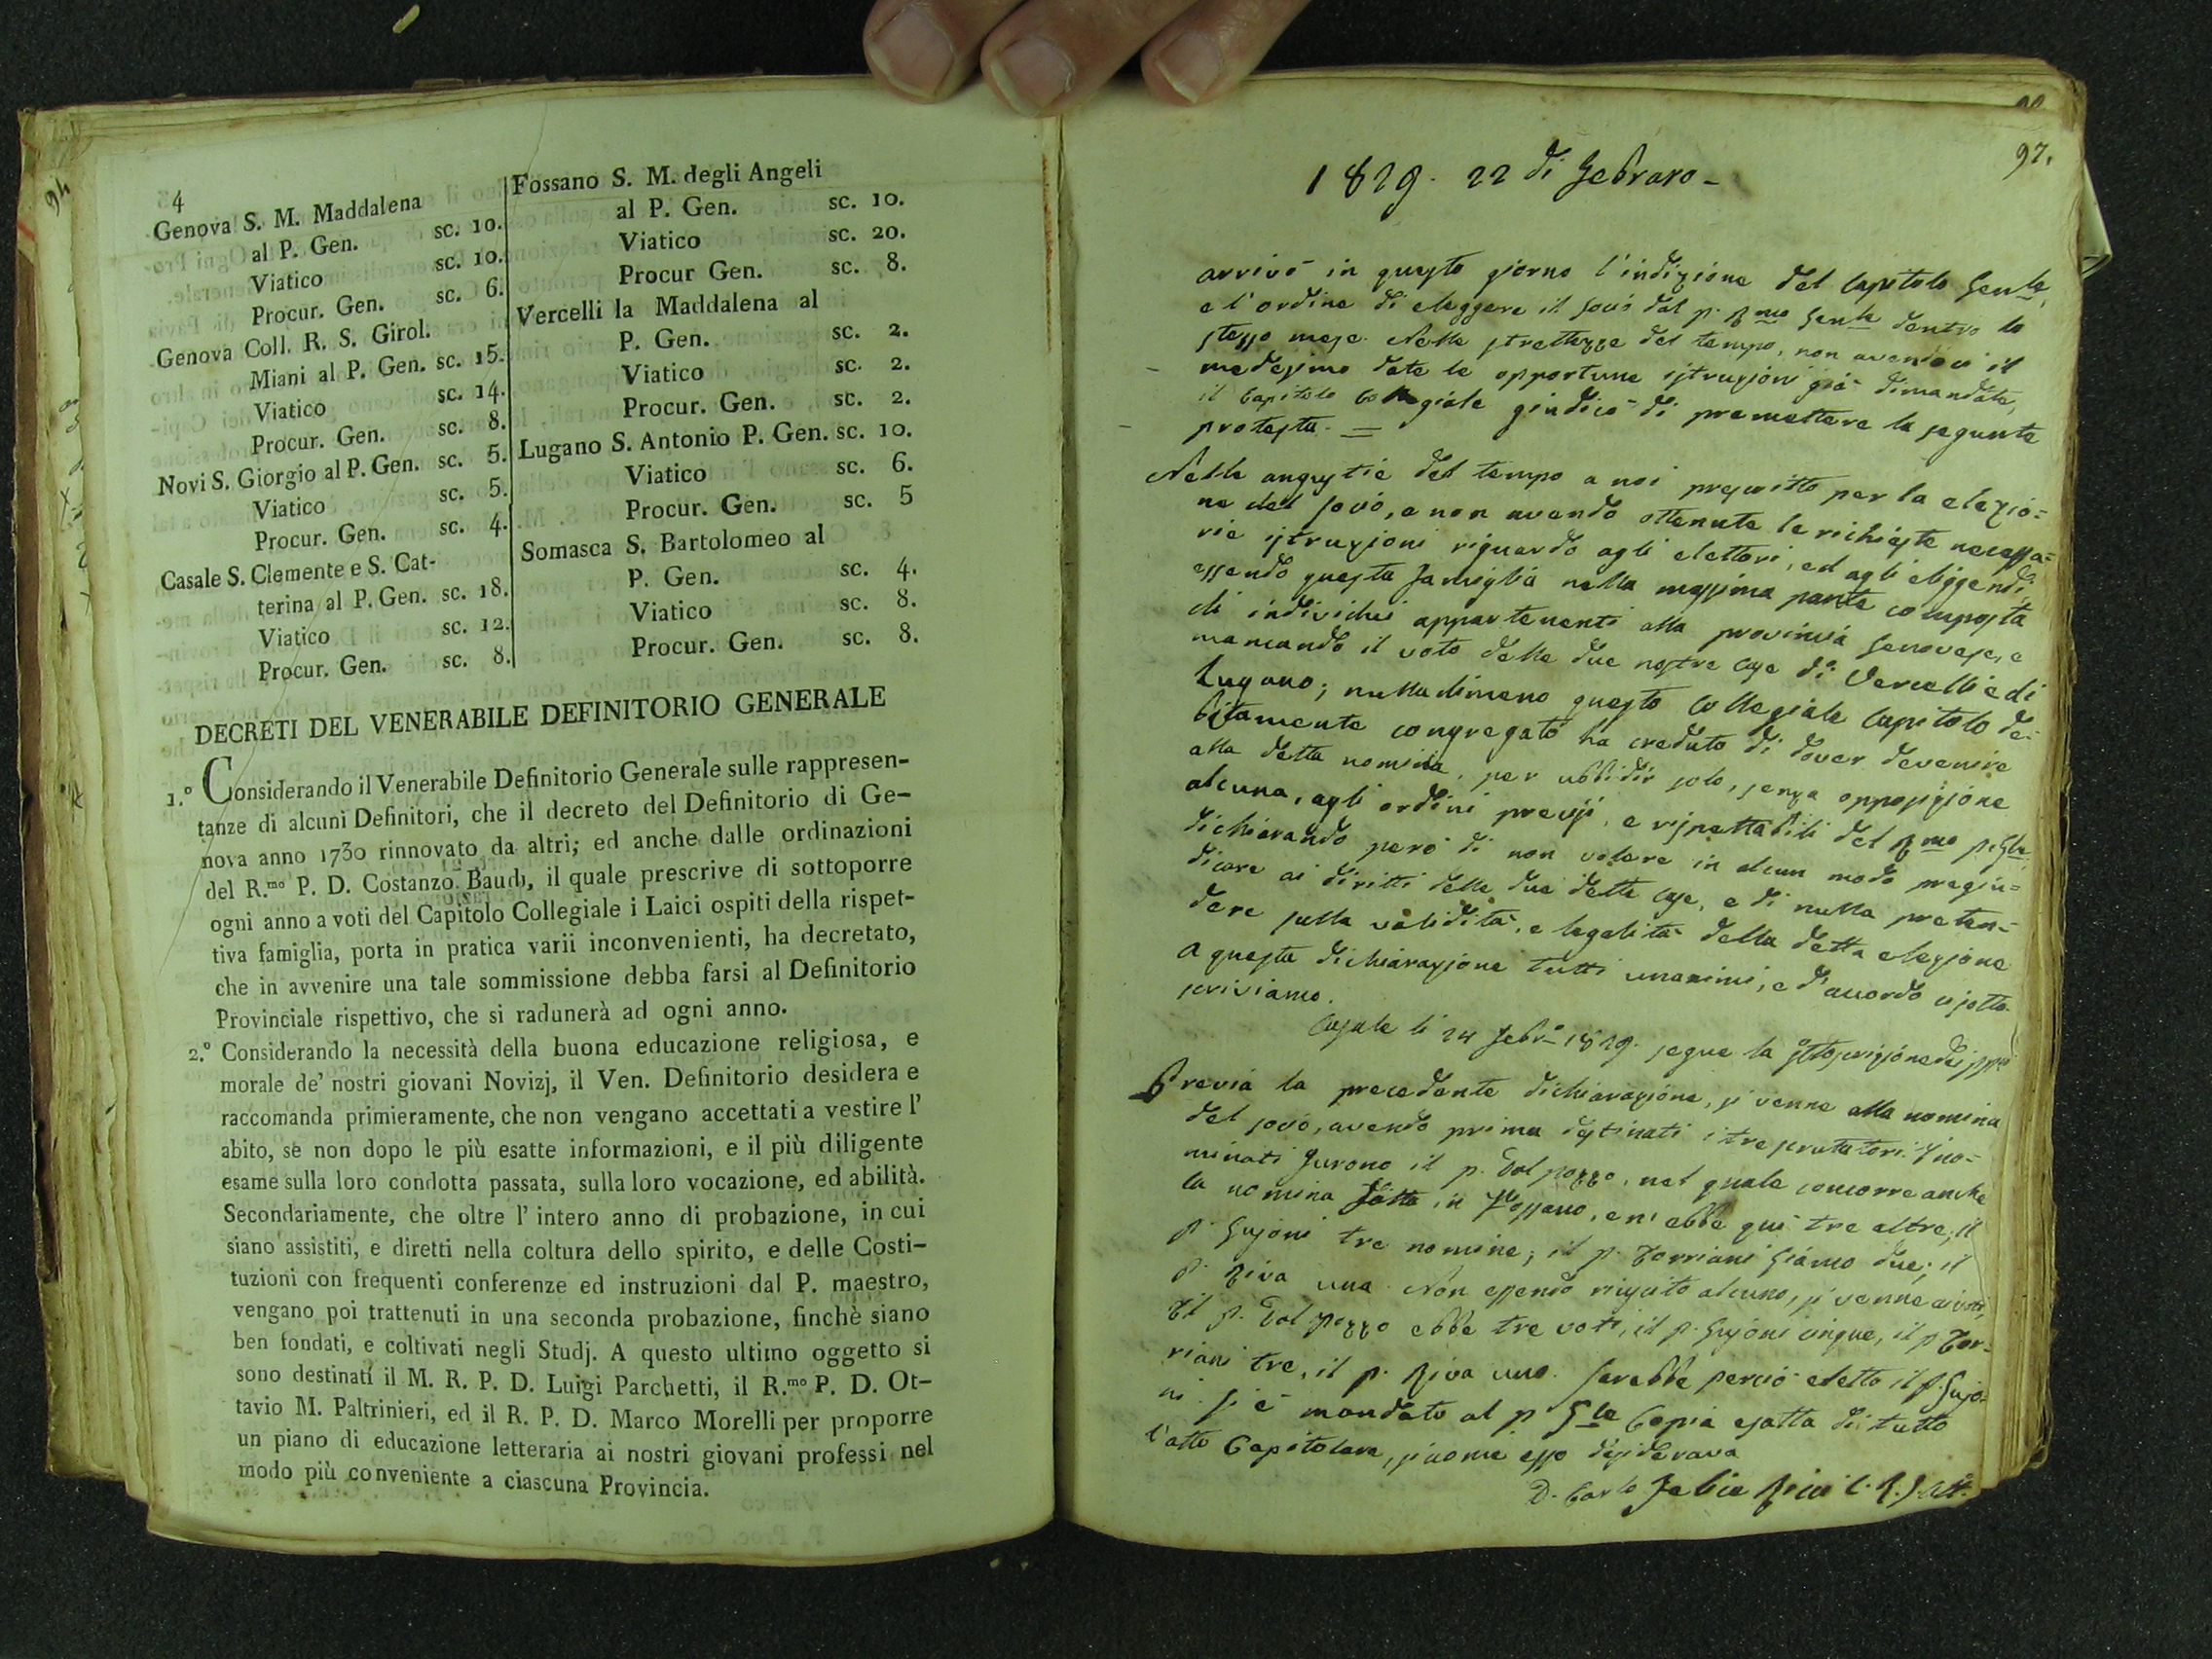 94
4
Genova S. M. Maddalena
al P. Gen. sc. 10.
Viatico sc. 10.
Procur. Gen. sc. 6.
Genova Coll. R. S. Girol.
Miani al P. Gen. sc. 15.
Viatico sc. 14.
Procur. Gen. sc. 8.
Novi S. Giorgio al P. Gen. sc. 5.
Viatico sc. 5.
Procur. Gen. sc. 4.
Casale S. Clemente e S. Cat-
terina al P. Gen. sc. 18.
Viatico sc. 12.
Procur. Gen. sc. 8.
Fossano S. M. degli Angeli
al P. Gen. sc. 10.
Viatico sc. 20.
Procur Gen. sc. 8.
Vercelli la Maddalena al
P. Gen. sc. 2.
Viatico sc. 2.
Procur. Gen. sc. 2.
Lugano S. Antonio P. Gen. sc. 10.
Viatico sc. 6.
Procur. Gen. sc. 5
Somasca S. Bartolomeo al
P. Gen. sc. 4.
Viatico sc. 8.
Procur. Gen. sc. 8.
DECRETI DEL VENERABILE DEFINITORIO GENERALE
1.º Considerando il Venerabile Definitorio Generale sulle rappresen-
tanze di alcuni Definitori, che il decreto del Definitorio di Ge-
nova anno 1730 rinnovato da altri; ed anche dalle ordinazioni
del R.mo P. D. Costanzo Baudi, il quale prescrive di sottoporre
ogni anno a voti del Capitolo Collegiale i Laici ospiti della rispet-
tiva famiglia, porta in pratica varii inconvenienti, ha decretato,
che in avvenire una tale sommissione debba farsi al Definitorio
Provinciale rispettivo, che si radunerà ad ogni anno.
2.º Considerando la necessità della buona educazione religiosa, e
morale de' nostri giovani Novizj, il Ven. Definitorio desidera e
raccomanda primieramente, che non vengano accettati a vestire l'
abito, se non dopo le più esatte informazioni, e il più diligente
esame sulla loro condotta passata, sulla loro vocazione, ed abilità.
Secondariamente, che oltre l' intero anno di probazione, in cui
siano assistiti, e diretti nella coltura dello spirito, e delle Costi-
tuzioni con frequenti conferenze ed instruzioni dal P. maestro,
vengano poi trattenuti in una seconda probazione, finchè siano
ben fondati, e coltivati negli Studj. A questo ultimo oggetto si
sono destinati il M. R. P. D. Luigi Parchetti, il R.mo P. D. Ot-
tavio M. Paltrinieri, ed il R. P. D. Marco Morelli per proporre
un piano di educazione letteraria ai nostri giovani professi nel
modo più conveniente a ciascuna Provincia.
97.
1829. 22 di Febraro-
arrivò in questo giorno l'indizione del Capitolo Genle,
e l'ordine di eleggere il Socio dal p. Rmo Genle dentro lo
stesso mese. Nelle strettezze del tempo, non avendoci il
medesimo date le opportune istruzioni già dimandate,
il Capitolo Collegiale giudicò di premettere la seguente
protesta. =
Nelle angustie del tempo a noi prescritto per la elezio=
ne del Socio, e non avendo ottenute le richieste necessa=
rie istruzioni riguardo agli elettori, ed agli eliggendi
essendo questa famiglia nella massima parte composta
di individui appartenenti alla provincia Genovese, e
mancando il voto delle due nostre case di Vercelli e di
Lugano; nulladimeno questo Collegiale Capitolo de-
bitamente congregato ha creduto di dover devenire
alla detta nomina, per ubbidir solo, senza opposizione
alcuna, agli ordini precisi, e rispettabili del Rmo p. Gle
dichiarando però di non volere in alcun modo pregiu=
dicare ai diritti delle due dette case, e di nulla preten-
dere sulla validità, e legalità della detta elezione
A questa dichiarazione tutti unanimi, e d'accordo ci sotto-
scriviamo.
Casale li 24 Febro 1829. segue la sottoscrizione dei
Previa la precedente dichiarazione, si venne alla nomina
del socio, avendo prima destinati i tre scrutatori. I no-
minati furono il p. Dal pozzo, nel quale concorre anche
la nomina fatta in Fossano, e n'ebbe qui tre altre; il
p. Gujoni tre nomine; il p. Torriani Giacmo due; il
p. Riva una. Non essendo riuscito alcuno, si venne ai voti,
il p. Dal pozzo ebbe tre voti, il p. Gujoni cinque, il p. Tor-
riani tre, il p. Riva uno. Sarebbe perciò eletto il p. Gujo-
ni. Si è mandato al p Gle Copia esatta di tutto
l'atto Capitolare, siccome esso desiderava
D. Carlo Felice